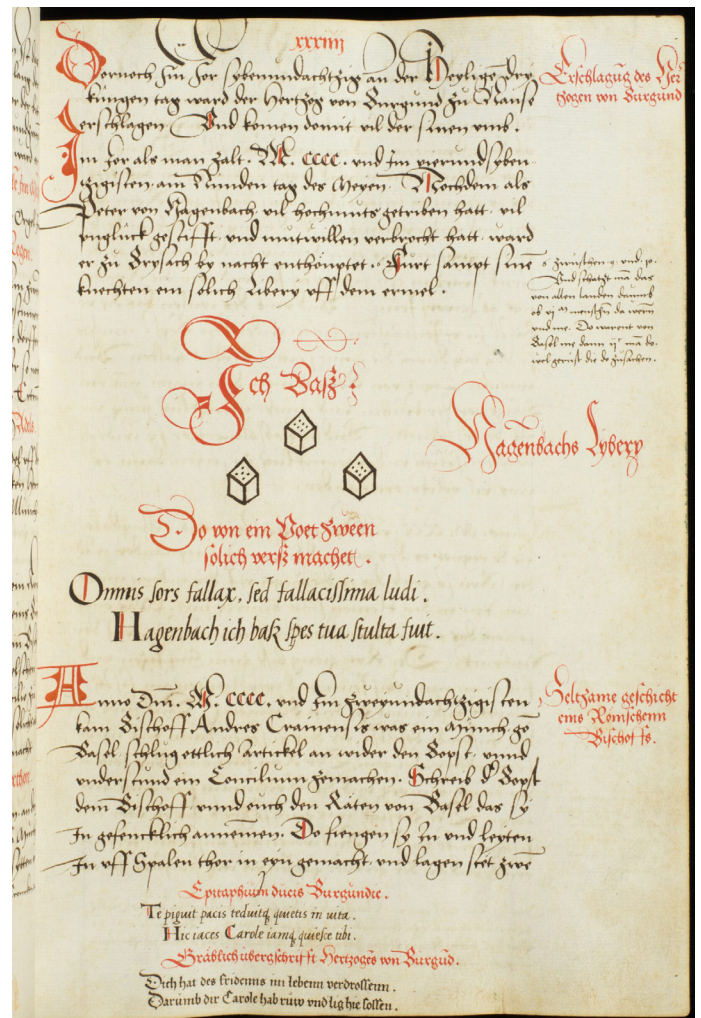 xxxiiij
Dornoch Im Jor sybenundachtzig an der Heyligen dry
kungen tag ward der Hertzog von Burgund zu Nanse
erschlagen Und komen domit vil der sinen umb.
Erschlagug des Her
tzogen von Burgund
Im Jor als man zalt. M. cccc. vnd Im vierundsyben
tzigisten am Nunden tag des Meyen. Nochdem als
Peter von Hagenbach vil hochmuts getriben hatt vil
vnglück gestifft vnd mutwillen verbrocht hatt ward
er zu Brysach by nacht enthouptet. Furt sampt sinē
knechten ein solich Libery vff dem ermel.
zwuschen 9. vnd. 10.
Und schatzt mā das
von allen landen
menschen da
vnd me. Do warent von
Basel me dann mā do
Ich Baß
Hagēnbachs Lybery
Do von ein Poet zween
solich verß machet.
Omnis sors fallax, sed fallacissima ludi.
Hagenbach ich baß spes tua stulta fuit.
Anno Dm̄. M. cccc. vnd Im zweyundachtzigisten
kam Bischoff Andres Crainensis was ein Münch gō
Basel schlug ettlich Artickel an wider den Bopst vnnd
vnderstund ein Concilium zemachen. Schreib d Bopst
dem Bischoff vnnd ouch den Räten von Basel das sy
In gefencklich annemen. Do fiengen sy In vnd leyten
In vff Spalen thor in eyn gemacht vnd lagen stet zwē
Seltzame geschicht
eins Römischenn
Bischoffs.
Epitaphium ducis Burgundie.
Te piguit pacis teduitq quietis in vita.
Hic iaces Carole iamq quiesce tibi.
Gräblich übergschrifft Hertzogēs von Burgūd.
Dich hat des fridenns im lebenn verdrossenn.
Darumb dir Carole hab rüw vnd lig hie